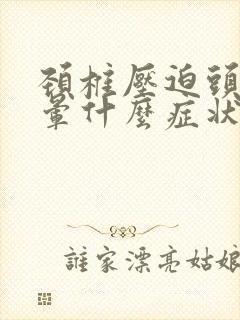 頚椎壓迫頭
暈什麼症狀
誰家漂亮姑娘